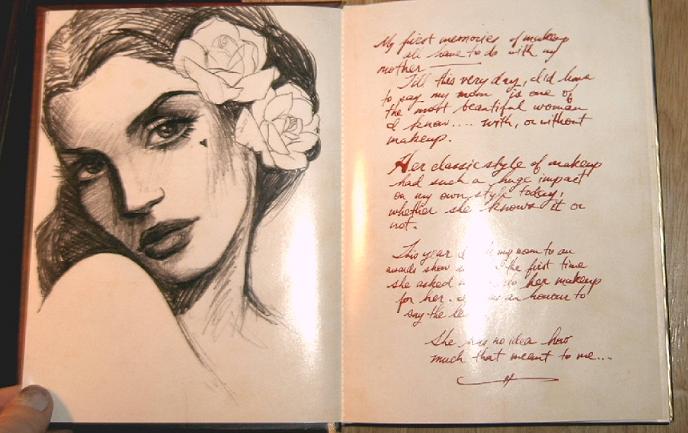 My first memories of makeup
all have to do with my
mother
Till this very day, I'd have
to say my mom is one of
the most beautiful woman
I know.... with, or without
makeup.
Her classic style of makeup
had such a huge impact
on my own style today,
whether she knows it or
not.
This year my mom to an
awards show the first time
she asked her makeup
for her. an honour to
say the
She has no idea how
much that meant to me...